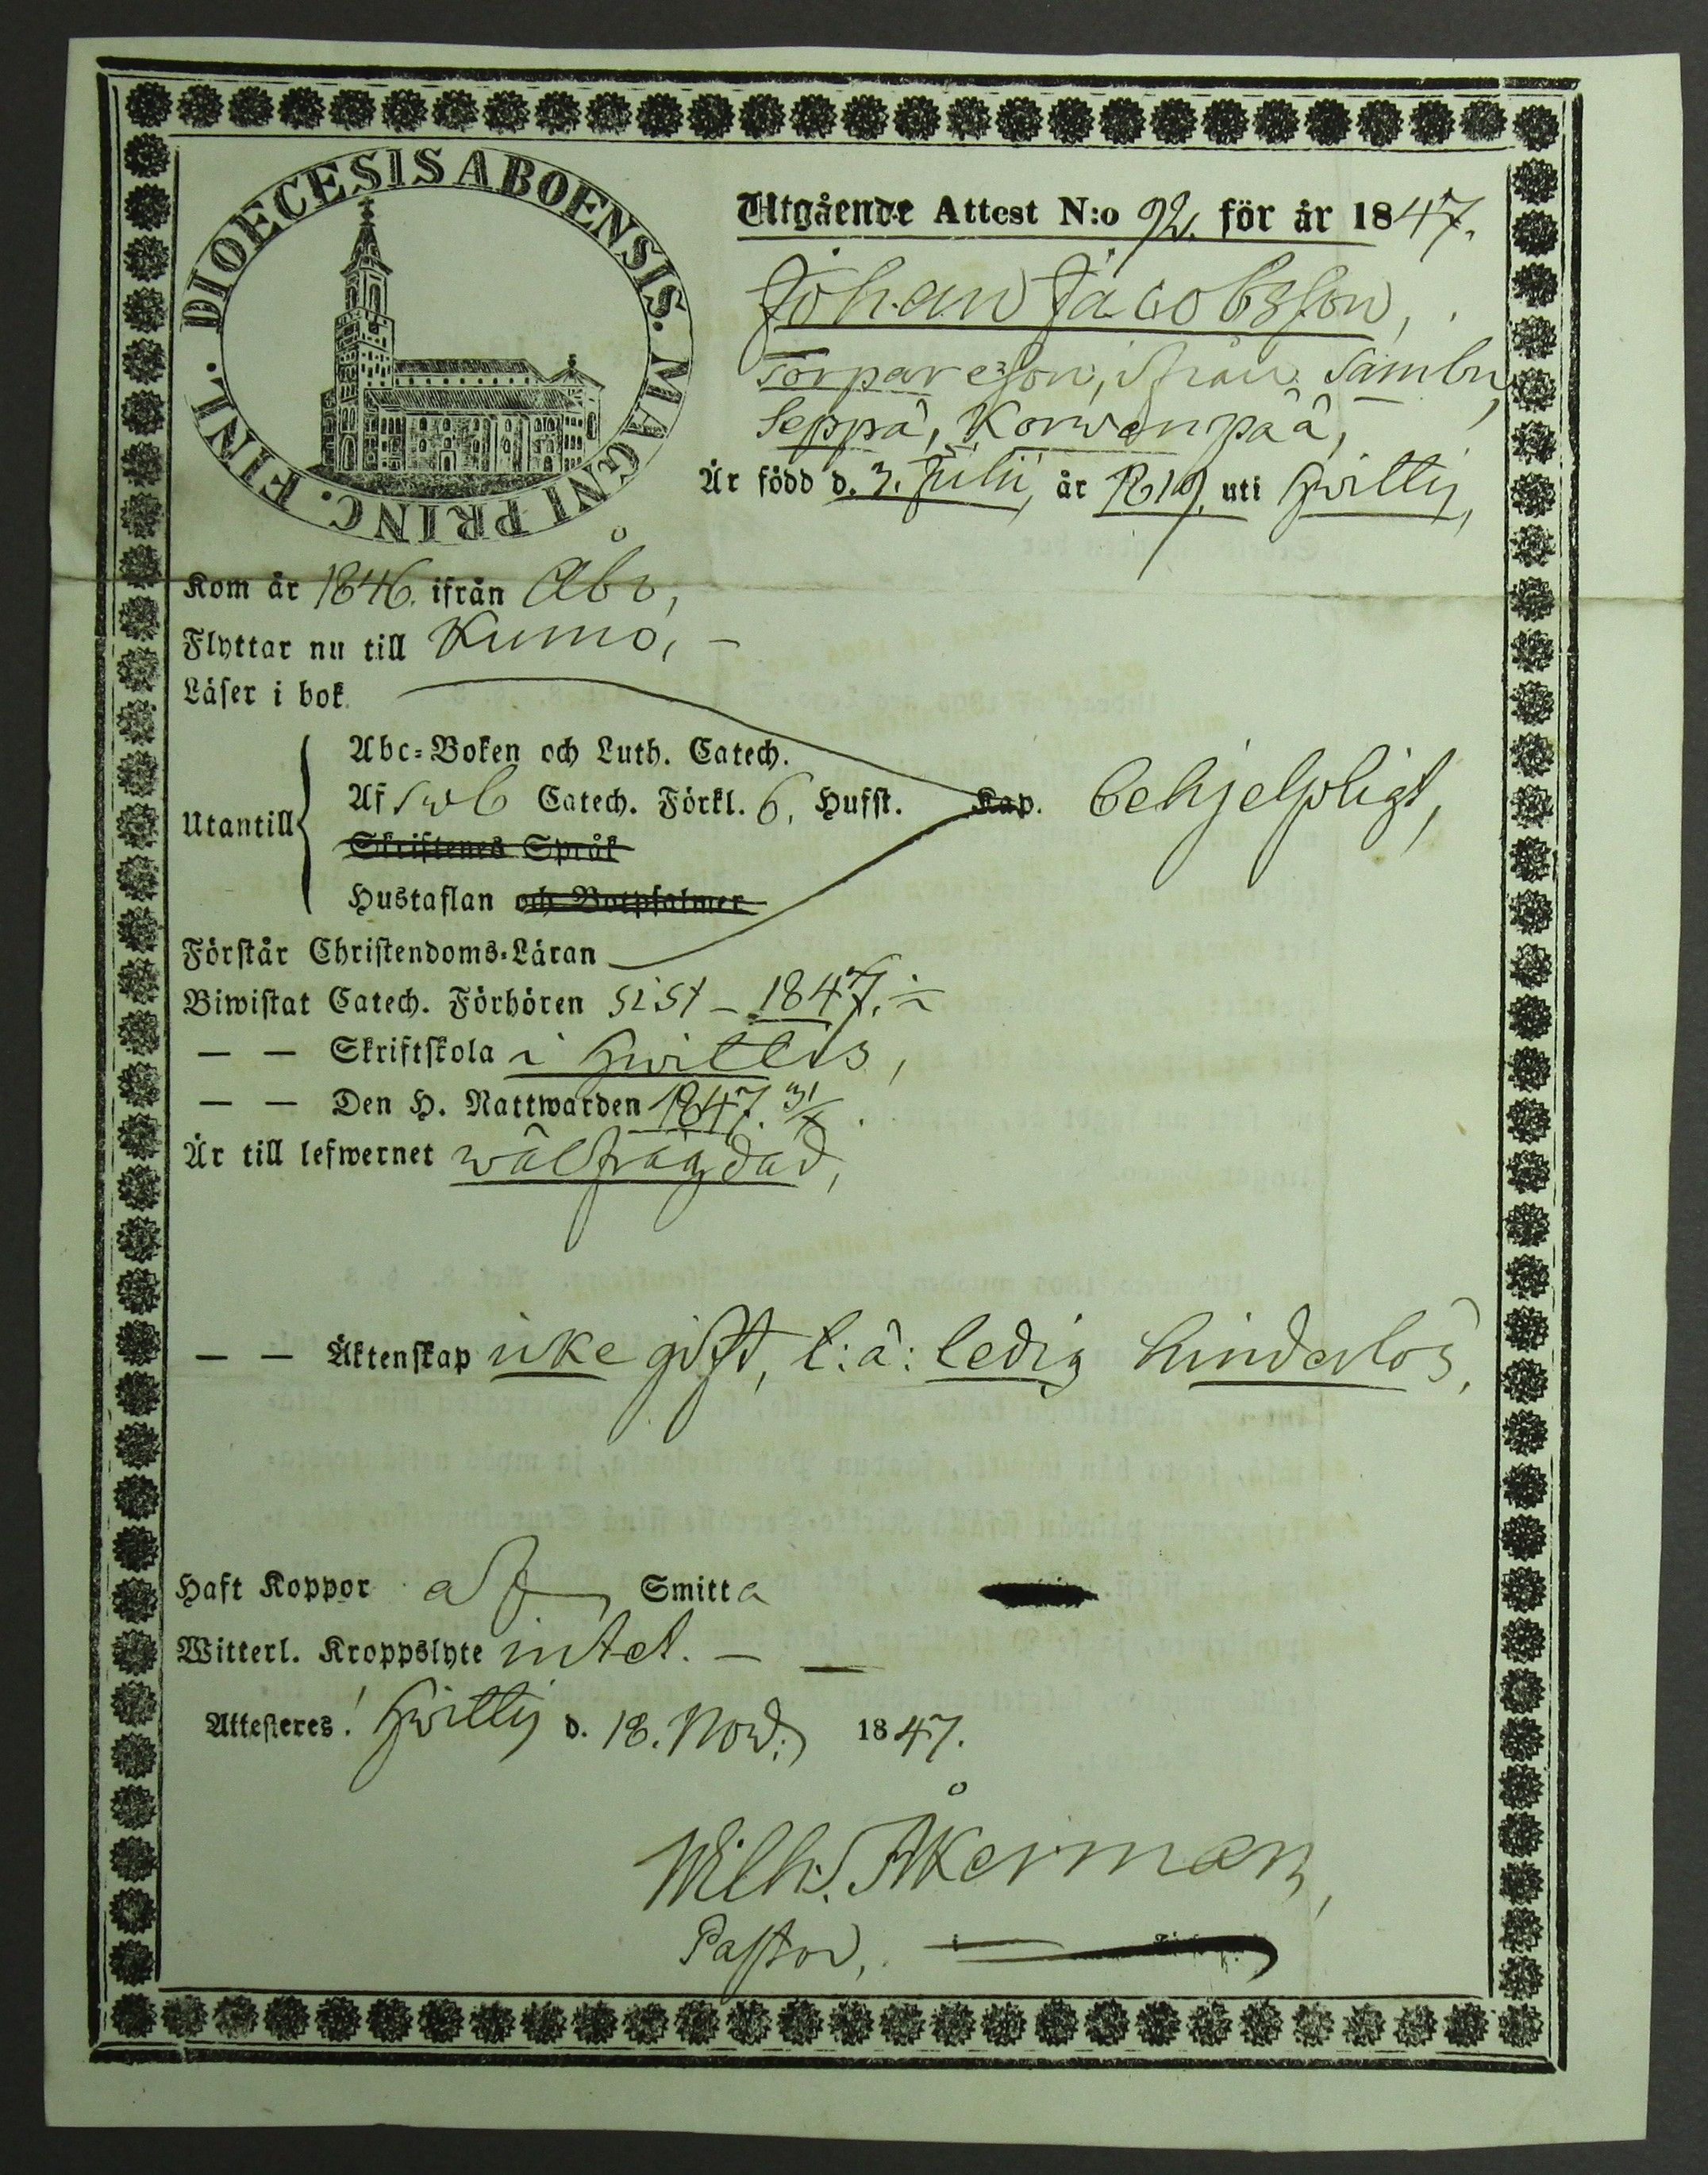 DIOECESIS ABOENSIS. MAGNI PRINC. FINL.
Utgående Attest N:o 92. för år 1847.
Johan Jacobsson,
Torpareson, ifrån Sambu,
Seppä, Korwenpää,
Är född d. 3. Julii, år 1819, uti Hwittis,
Kom år 1846. ifrån Åbo,
Flyttar nu till Kumo, –
Läser i bok
Utantill
Abc-Boken och Luth. Catech.
Af Catech. Förkl. 6, Hufst. Kap. behjelpligt,
Skriftenes Språk
Hustaflan och Botpsalmer
Förstår Christendoms-Läran
Biwistat Catech. Förhören sist – 1847. –
— — Skriftskola i Hwittis,
— — Den H. Nattwarden 1847. 31/X.
Är till lefwernet wälfrägdad,
— — Äktenskap icke gift, l: ä: ledig hinderlös,
Haft Koppor af Smitta
Witterl. Kroppslyte intet. – –
Attesteres! Hwittis d. 18. Nov: 1847.
Wilh. Åkerman,
Pastor,